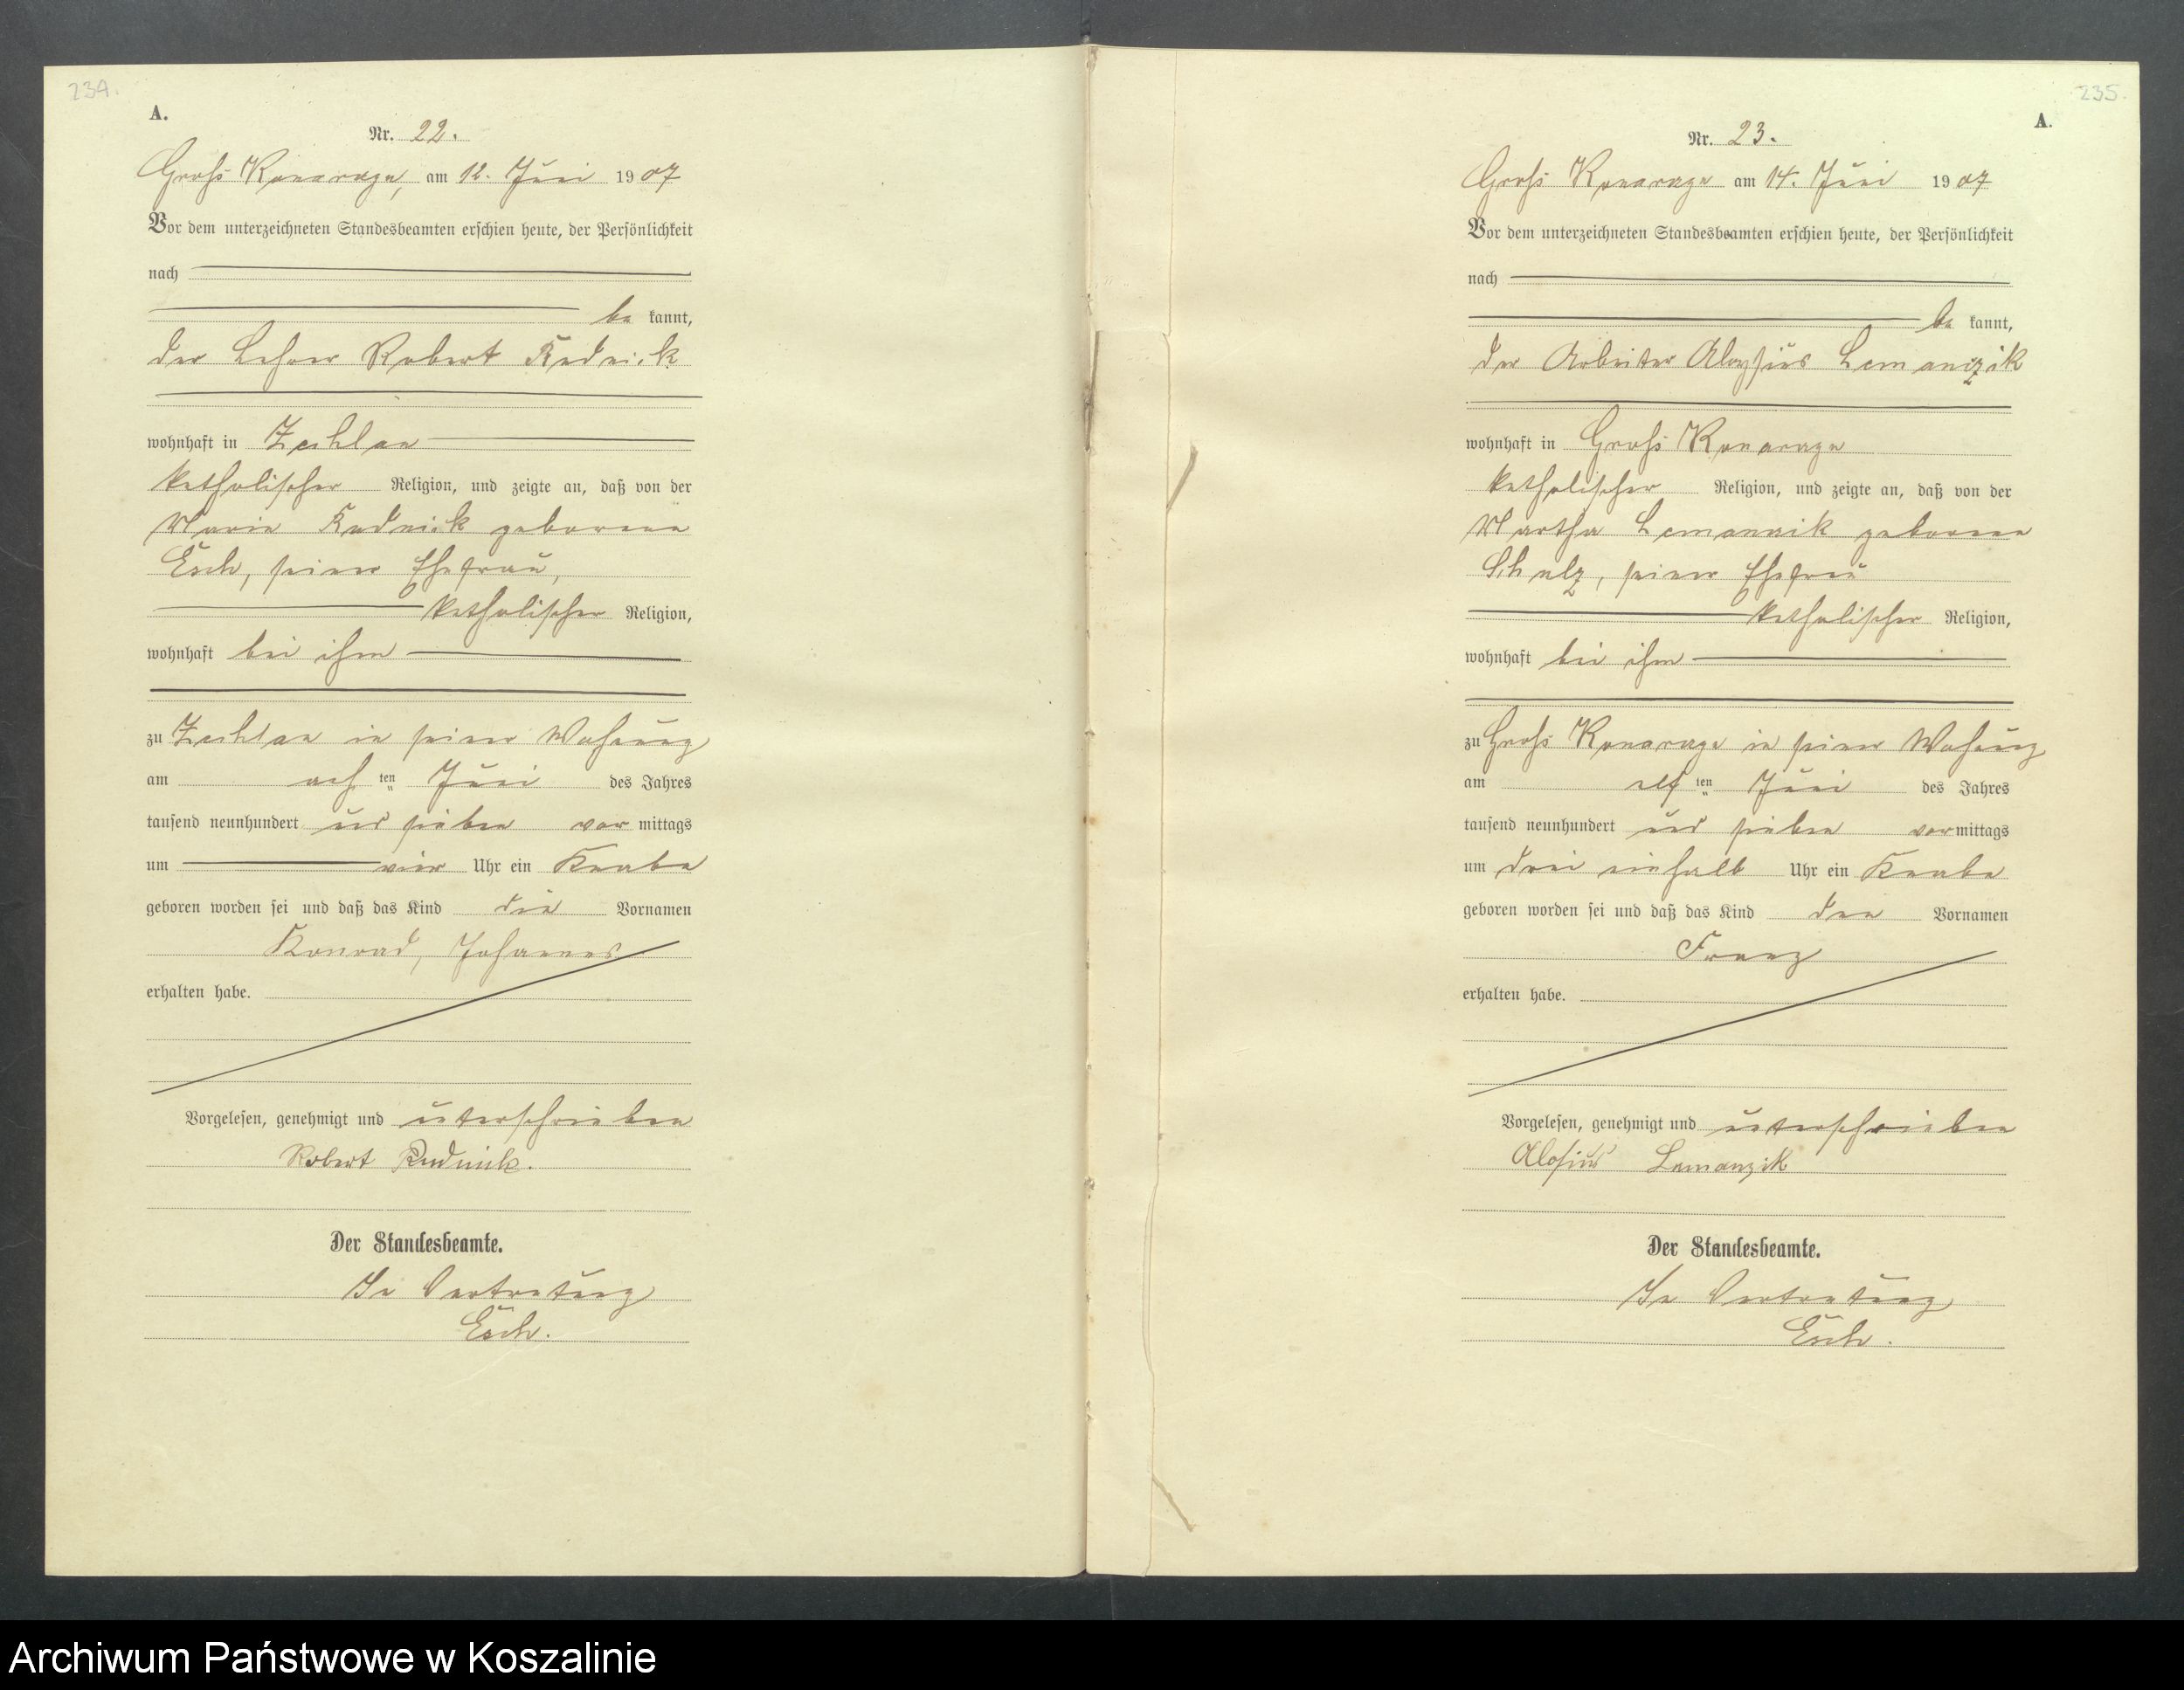 234.
A.
Nr. 22.
Groß Konarzyn, am 12. Juni 1907
Vor dem unterzeichneten Standesbeamten erschien heute, der Persönlichkeit
nach
be kannt,
der Lehrer Robert Rudnick
wohnhaft in Zechlau
katholischer Religion, und zeigte an, daß von der
Maria Rudnick geborene
Esch, seiner Ehefrau,
katholischer Religion,
wohnhaft bei ihm
zu Zechlau in seiner Wohnung
am ach ten Juni des Jahres
tausend neunhundert und sieben vor mittags
um vier Uhr ein Knabe
geboren worden sei und daß das Kind die Vornamen
Konrad, Johannes
erhalten habe.
Vorgelesen, genehmigt und unterschrieben
Robert Rudnick.
Der Standesbeamte.
In Vertretung
Esch.
235.
A.
Nr. 23.
Groß Konarzyn am 14. Juni 1907
Vor dem unterzeichneten Standesbeamten erschien heute, der Persönlichkeit
nach
be kannt,
der Arbeiter Aloysius Lemanzik
wohnhaft in Groß Konarzyn
katholischer Religion, und zeigte an, daß von der
Martha Lemanzik geborene
Schulz, seiner Ehefrau
katholischer Religion,
wohnhaft bei ihm
zu Groß Konarzyn in seiner Wohnung
am elf ten Juni des Jahres
tausend neunhundert und sieben vor mittags
um drei einhalb Uhr ein Knabe
geboren worden sei und daß das Kind den Vornamen
Franz
erhalten habe.
Vorgelesen, genehmigt und unterschrieben
Alosius Lemanzik
Der Standesbeamte.
In Vertretung
Esch.
Archiwum Państwowe w Koszalinie